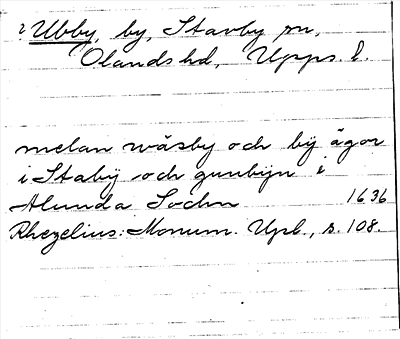 ? Ubby, by, Stavby sn,
Olands hd, Upps. l.
melan wäsby och bÿ ägor
i Stabÿ och gunbijn i
Alunda Sochn 1636
Rhezelius: Monum. Upl., s. 108.